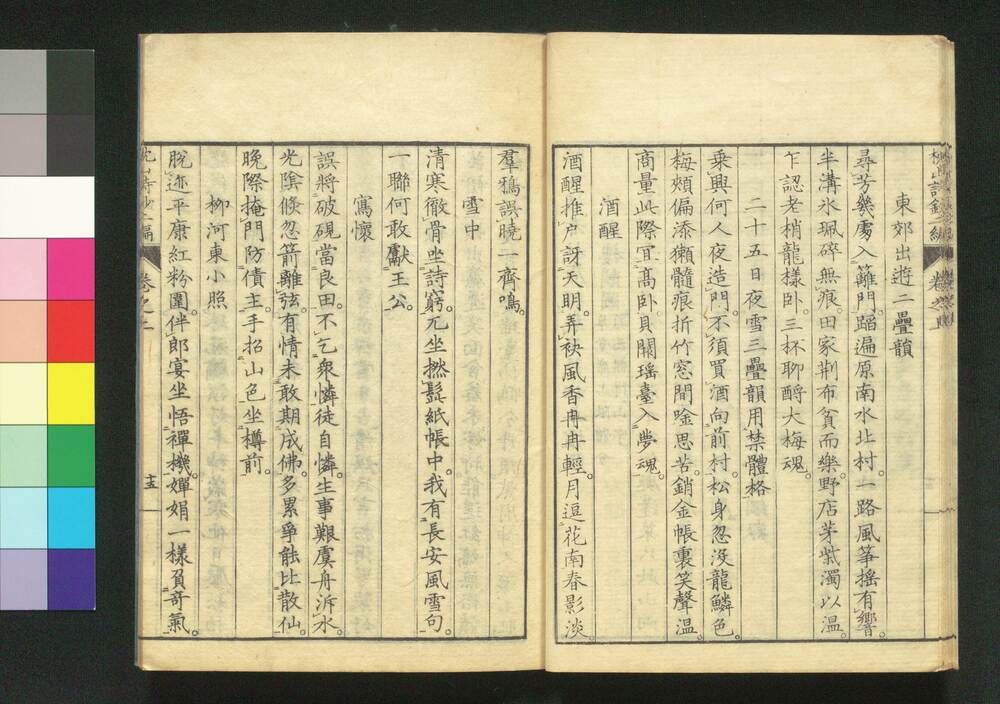 東郊出遊二疊韻
尋芳幾處入籬門。蹈遍原南水北村。一路風箏搖有響。
半溝氷珮碎無痕。田家荆布貧而樂。野店茅柴濁以溫。
乍認老梢龍樣臥。三杯聊酹大梅魂。
二十五日夜雪三疊韻用禁體格
乘興何人夜造門。不須買酒向前村。松身忽沒龍鱗色。
梅頰偏添獺髓痕。折竹窓間唫思苦。銷金帳裏笑聲溫。
商量此際冝高臥。貝闕瑤臺入夢魂。
酒醒
酒醒推戶訝天明。弄袂風香冉冉輕。月逗花南春影淡。
羣鴉誤曉一齊鳴。
雪中
清寒徹骨坐詩窮。兀坐撚髭紙帳中。我有長安風雪句。
一聯何敢獻王公。
寫懷
誤將破硯當良田。不乞衆憐徒自憐。生事艱虞舟泝水。
光陰倏忽箭離弦。有情未敢期成佛。多累爭能比散仙。
晚際掩門防債主。手招山色坐樽前。
柳河東小照
脫迹平康紅粉圍。伴郎宴坐悟禪機。嬋娟一樣負奇氣。
卷之二
十五